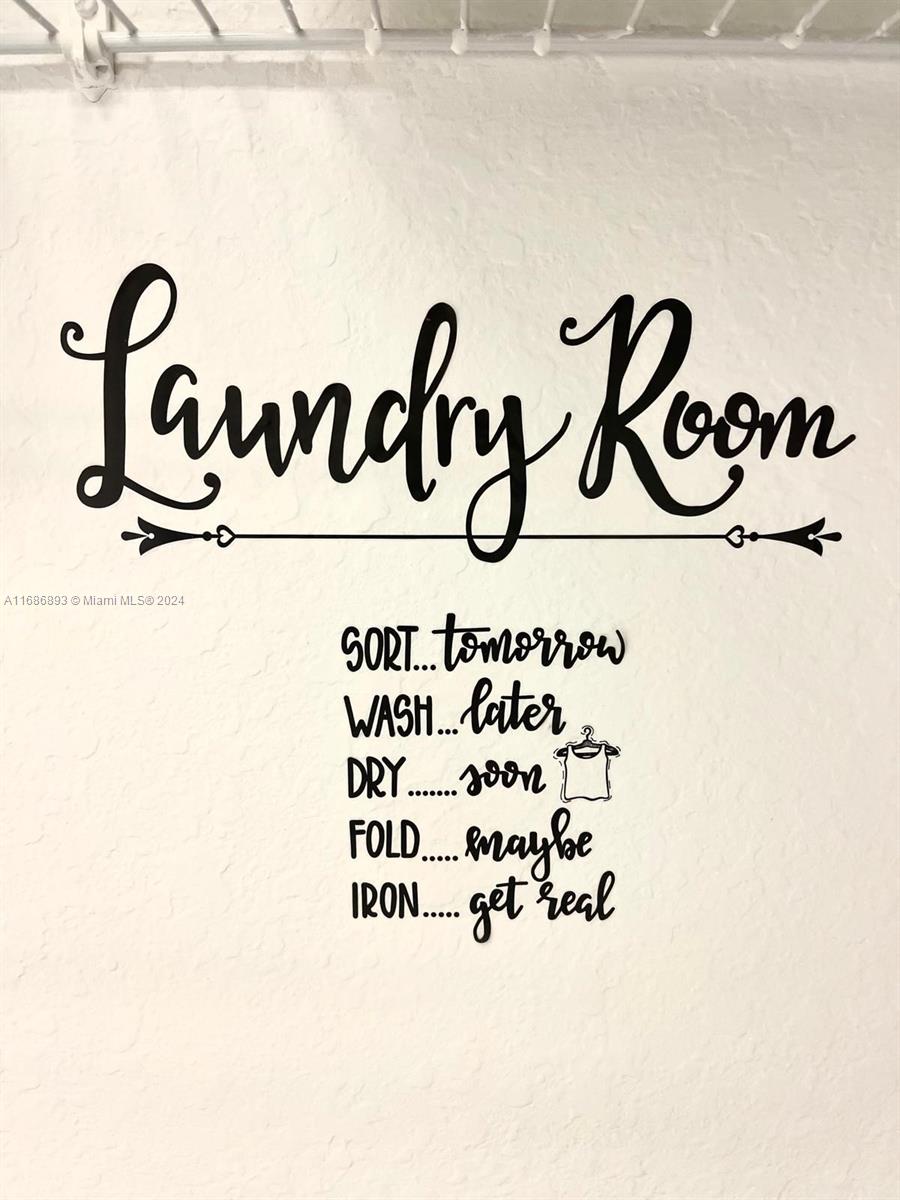 Laundry Room
A11686893 © Miami MLS® 2024
SORT...tomorrow
WASH...later
DRY.......soon
FOLD.....maybe
IRON.....get real